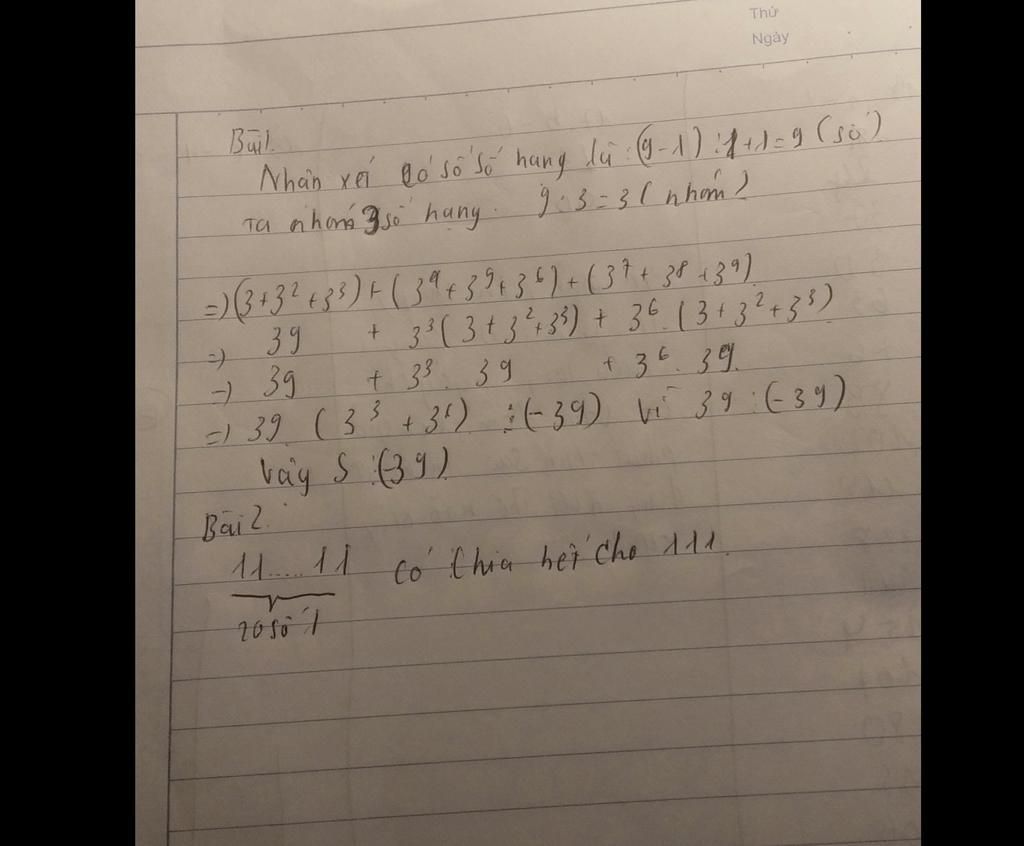 Thứ
Ngày
Bài 1.
Nhân xét có số số hang là : (9-1) : 1+1 = 9 (số)
Ta nhóm 3 số hạng. 9 : 3 = 3 (nhóm)
=) (3+3² +3³) + (3⁴ + 3⁹ + 3⁶) + (3⁷ + 3⁸ +3⁹)
=) 39 + 3³ (3 + 3² + 3³) + 3⁶. (3 + 3² + 3³)
=) 39 + 3³. 39 + 3⁶. 39.
=) 39. (3³ + 3⁶) ⋮ (-39) vì 39 : (-39)
Vây S : (-39)
Bài 2.
11.....11 có chia hết cho 111.
20 số 1